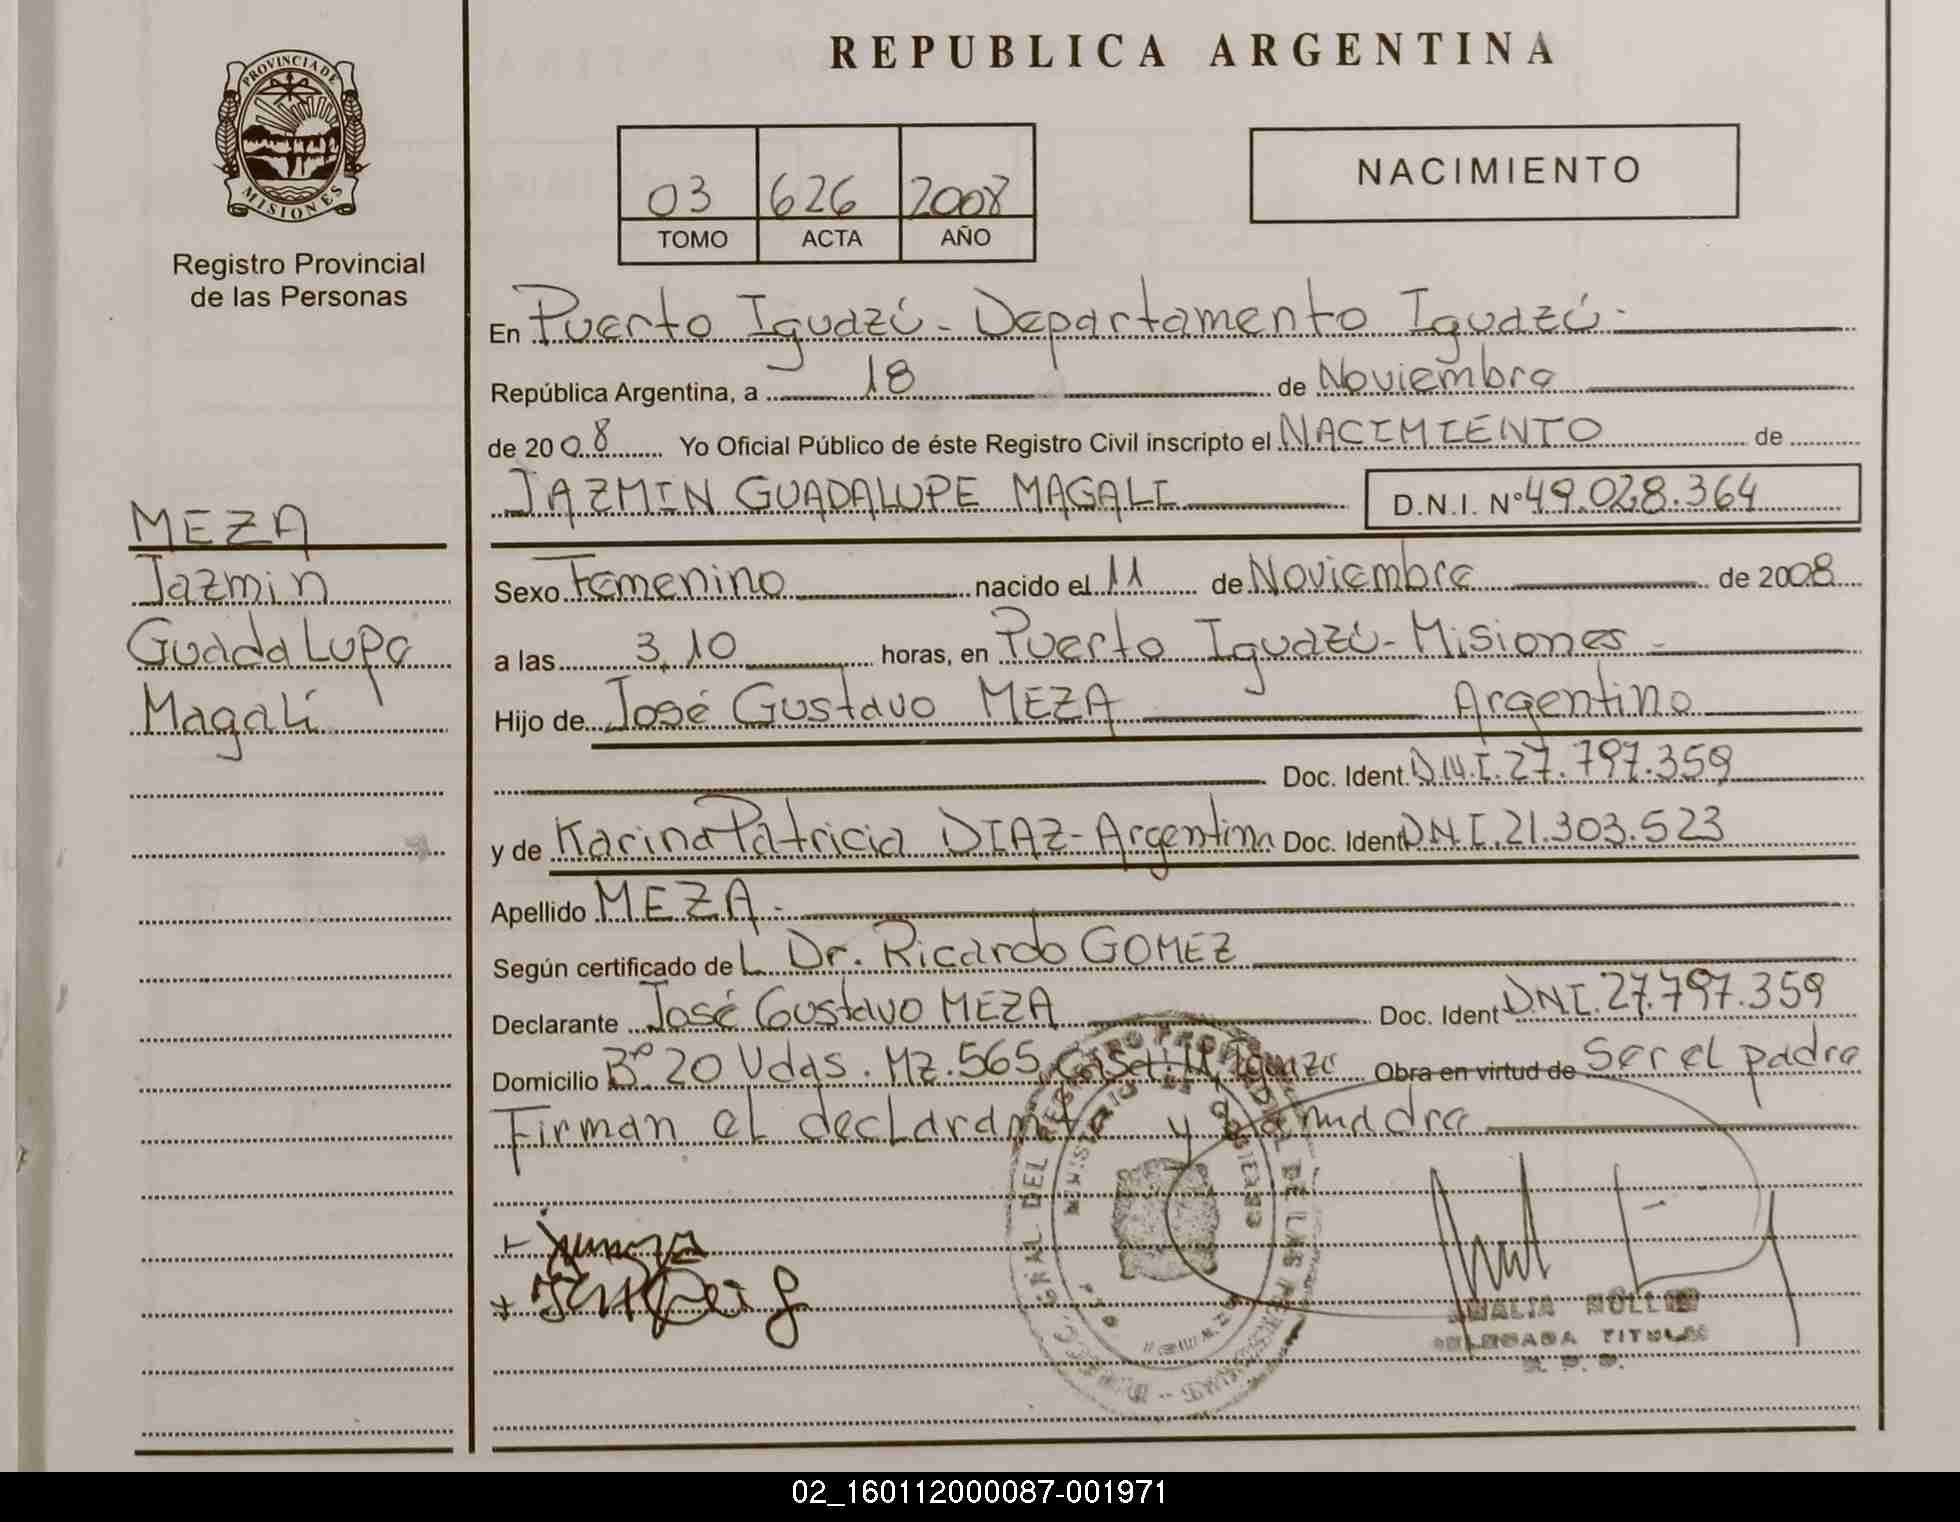 PROVINCIA DE
MISIONES
Registro Provincial
de las Personas
MEZA
Jazmin
Guadalupe
Magalí
REPUBLICA ARGENTINA
03 626 2008
TOMO ACTA AÑO
NACIMIENTO
En Puerto Iguazú - Departamento Iguazú -
República Argentina, a 18 de Noviembre
de 2008 Yo Oficial Público de éste Registro Civil inscripto el NACIMIENTO de
JAZMIN GUADALUPE MAGALI D.N.I. Nº 49.028.364
Sexo Femenino nacido el 11 de Noviembre de 2008
a las 3,10 horas, en Puerto Iguazú - Misiones -
Hijo de José Gustavo MEZA Argentino
Doc. Ident. D.N.I. 27.797.359
y de Karina Patricia DIAZ - Argentina Doc. Ident. D.N.I. 21.303.523
Apellido MEZA -
Según certificado del Dr. Ricardo GOMEZ
Declarante José Gustavo MEZA Doc. Ident D.N.I. 27.797.359
Domicilio Bº 20 Vdas. Mz. 565 Obra en virtud de Ser el padre
Firman el declarante y la madre
DELEGADA TITULAR
02_160112000087-001971